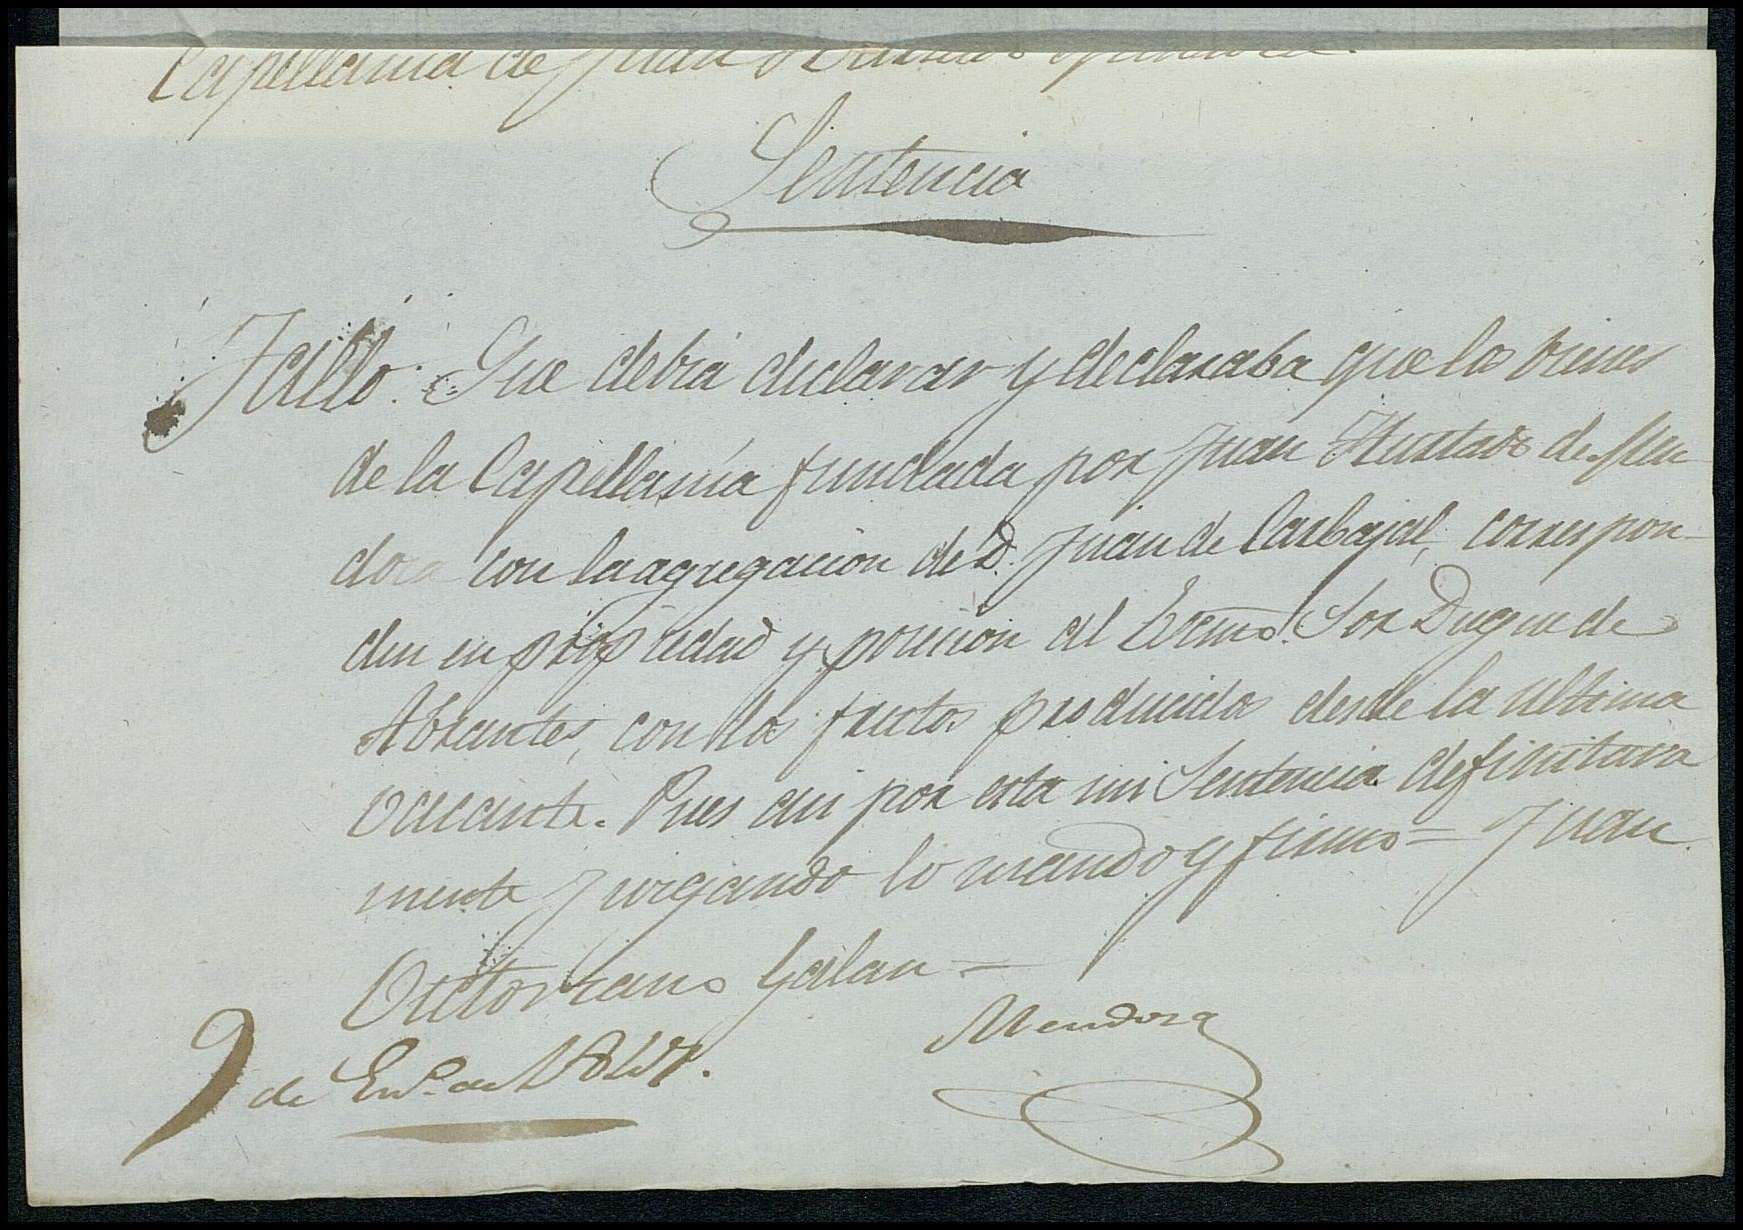 Capellania de Juan Hurtado
Sentencia
Fallo: Que debia declarar y declaraba que los bienes
de la Capellanía fundada por Juan Hurtado de Men
doza con la agregacion de D. Juan de Carbajal, correspon-
den en propiedad y posesion al Excmo. Sor Duque de
Abrantes, con los frutos producidos desde la ultima
vacante. Pues asi por esta mi Sentencia definitiva
mente juzgando lo mando y firmo = Juan
Victoriano Galan =
Mendoza
9 de En.º de